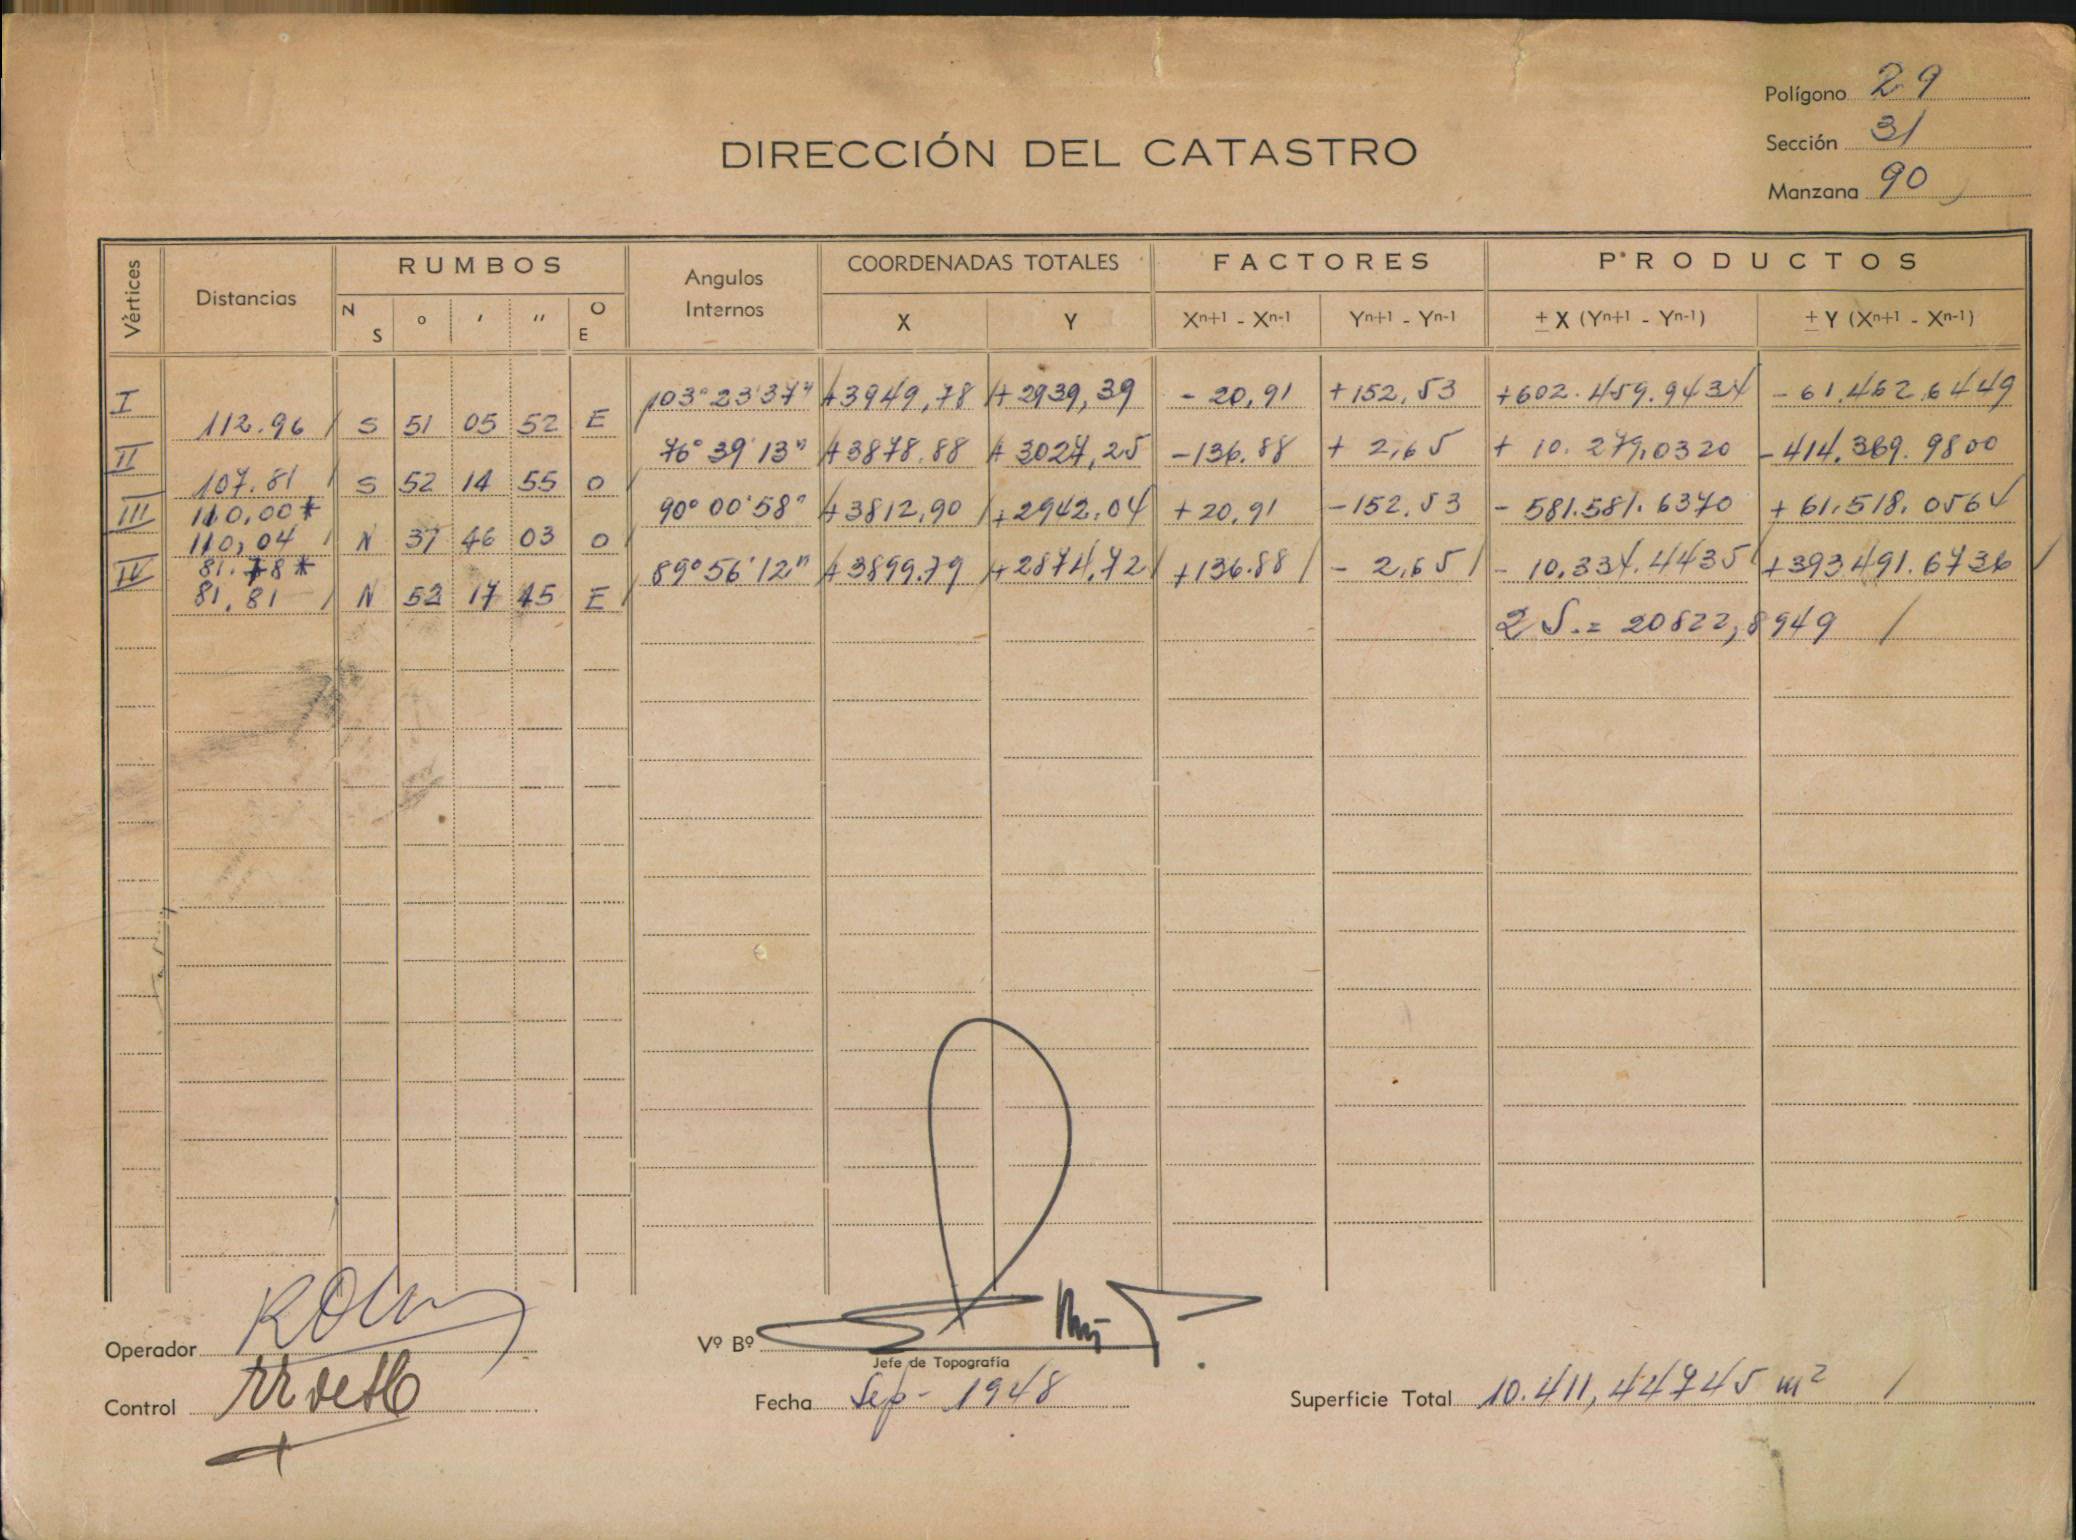 Polígono 29
Sección 31
Manzana 90
DIRECCIÓN DEL CATASTRO
Vértices Distancias RUMBOS N S o ′ ″ O E Angulos Internos COORDENADAS TOTALES X Y FACTORES Xn+1 - Xn-1 Yn+1 - Yn-1 PRODUCTOS ± X (Yn+1 - Yn-1) ± Y (Xn+1 - Xn-1)
I 103° 23' 37" +3949,78 +2939,39 - 20,91 +152,53 +602.459.9434 - 61.462.6449
112.96 S 51 05 52 E
II 76° 39' 13" +3878.88 +3027,25 -136.88 + 2,65 + 10.279,0320 -414.369.9800
107.81 S 52 14 55 O
III 110,00* 90° 00' 58" +3812,90 +2942.04 +20,91 -152,53 - 581.581.6370 + 61.518.0564
110,04 N 37 46 03 O
IV 81.78* 89° 56' 12" +3899.79 +2874,72 +136.88 - 2,65 - 10.334.4435 +393.491.6736
81,81 N 52 17 45 E
2 S.= 20822,8949
Operador
Vº Bº
Jefe de Topografía
Control
Fecha Sep - 1948
Superficie Total 10.411,44745 m²